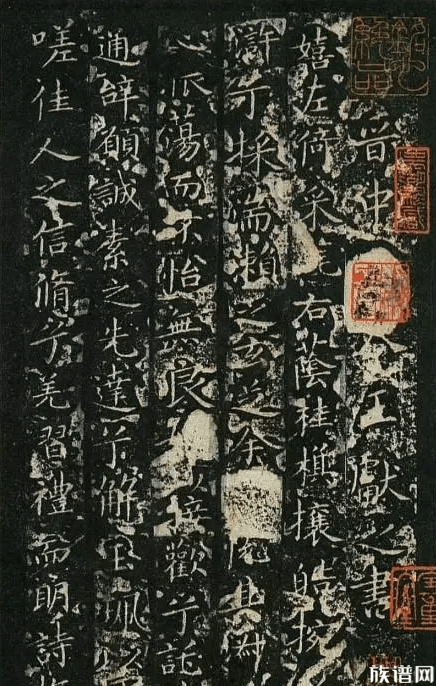 晉中王獻之書
嬉左倚采旄右蔭桂旗攘皓捥
滸兮採湍瀨之玄芝余悅其淑
心振蕩而不怡無良以接歡兮託
通辭願誠素之先達兮解玉珮以
嗟佳人之信脩兮羌習禮而明詩
族谱网